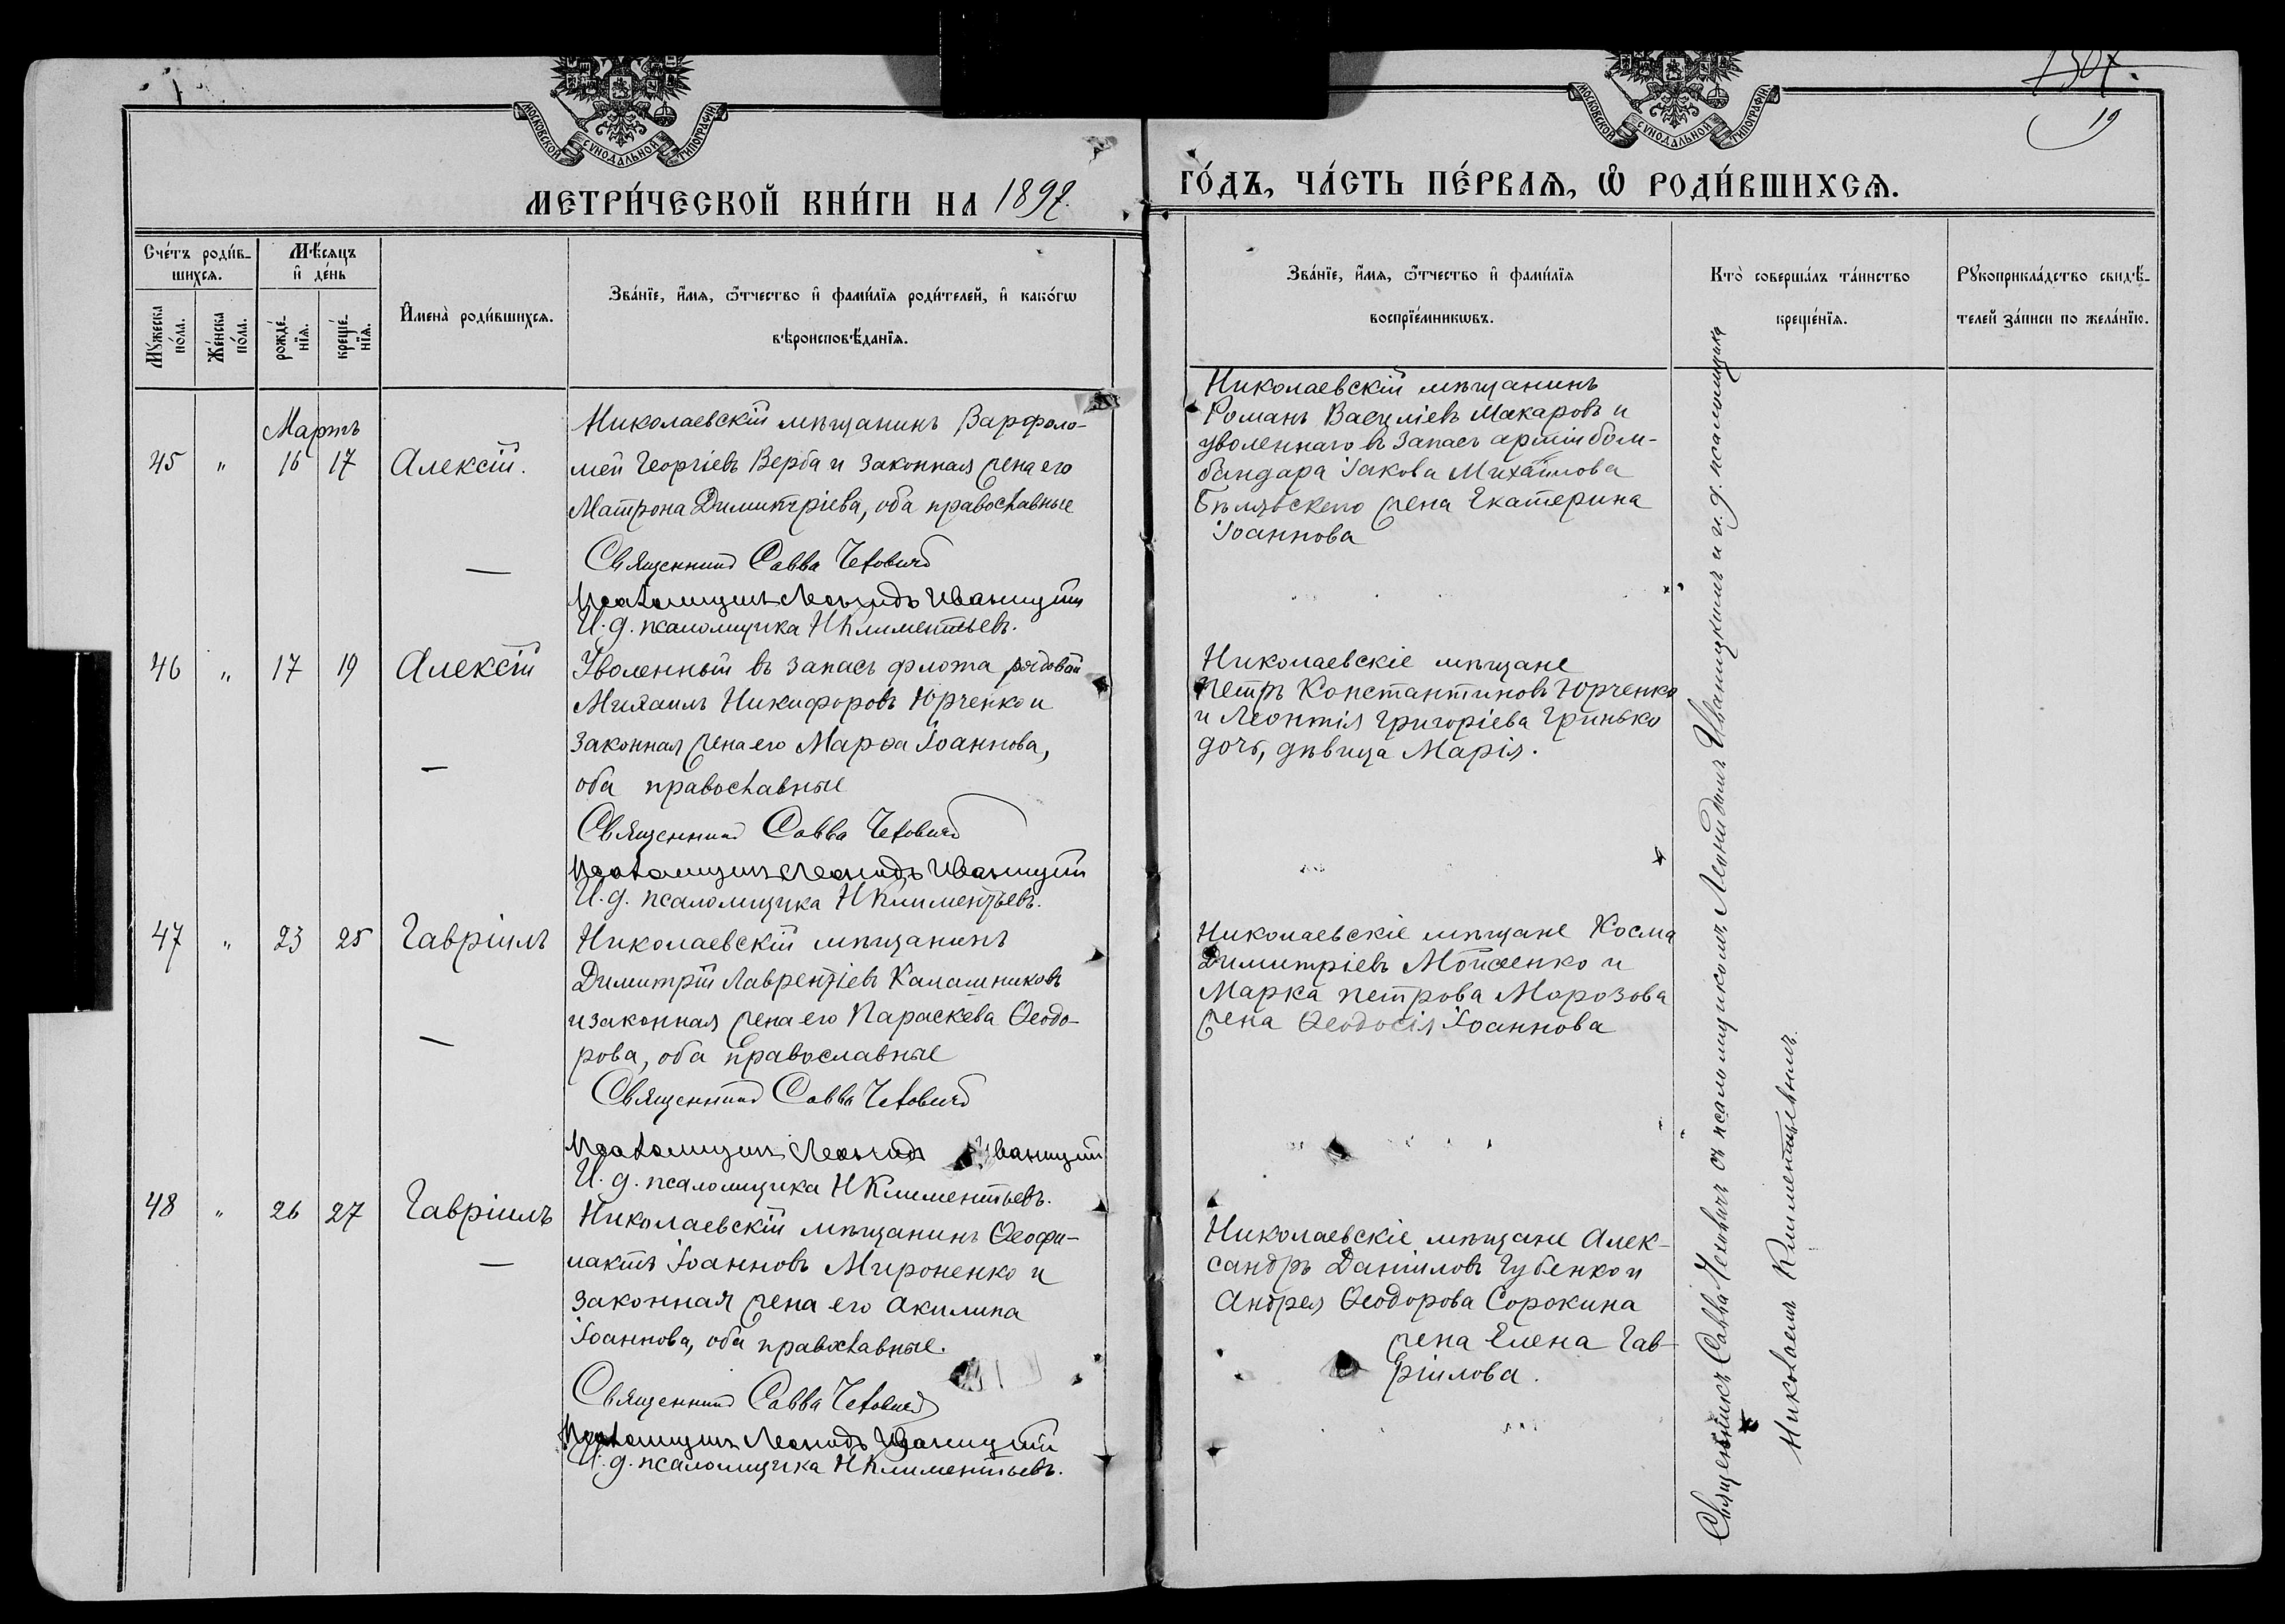 1307.
19
МОСКОВСКОЙ СѴНОДАЛЬНОЙ ТИПОГРАФІИ
МОСКОВСКОЙ СѴНОДАЛЬНОЙ ТИПОГРАФІИ
МЕТРИ́ЧЕСКОЙ КНИ́ГИ НА 1897. ГО́ДЪ, ЧА́СТЬ ПЕ́РВАѦ, Ѡ҆ РОДИ́ВШИХСѦ.
Сче́тъ роди́в-
шихсѧ.
Мꙋ́жеска по́ла.
Же́нска по́ла.
Мѣ́сѧцъ
и҆ де́нь
рожде́-
нїѧ.
креще́-
нїѧ.
И҆мена̀ роди́вшихсѧ.
Зва́нїе, и҆́мѧ, ѻ҆́тчество и҆ фами́лїѧ роди́телей, и҆ како́гѡ
вѣроисповѣ́данїѧ.
Зва́нїе, и҆́мѧ, ѻ҆́тчество и҆ фами́лїѧ
воспрїе́мникѡвъ.
Кто̀ соверша́лъ та́инство
креще́нїѧ.
Рꙋкоприкла́дство свидѣ́-
телей за́писи по жела́нїю.
Мартъ
45 " 16 17 Алексій.
Николаевскій мѣщанинъ Варфоло-
мей Георгіевъ Верба и законная жена его
Матрона Димитріева, оба православные
Священникъ Савва Чеховичъ
Псаломщикъ Леонидъ Иваницкій
И. д. псаломщика Н Климентьевъ.
Николаевскій мѣщанинъ
Романъ Василіевъ Макаровъ и
уволеннаго въ запасъ арміи бом-
бандара Іакова Михайлова
Бѣлявскаго жена Екатерина
Іоаннова
46 " 17 19 Алексій
Уволенный въ запасъ флота рядовой
Михаилъ Никифоровъ Юрченко и
законная жена его Марѳа Іоаннова,
оба православные
Священникъ Савва Чеховичъ
Псаломщикъ Леонидъ Иваницкій
И. д. псаломщика Н Климентьевъ.
Николаевскіе мѣщане
Петръ Константиновъ Юрченко
и Леонтія Григоріева Гринько
дочь, дѣвица Марія.
47 " 23 25 Гавріилъ
Николаевскій мѣщанинъ
Димитрій Лаврентіевъ Калашниковъ
и законная жена его Параскева Ѳеодо-
рова, оба православные
Священникъ Савва Чеховичъ
Псаломщикъ Леонидъ Иваницкій
И. д. псаломщика Н Климентьевъ.
Николаевскіе мѣщане Косма
Димитріевъ Мойсенко и
Марка Петрова Морозова
жена Ѳеодосія Іоаннова
48 " 26 27 Гавріилъ
Николаевскій мѣщанинъ Ѳеофи-
лактъ Іоанновъ Мироненко и
законная жена его Акилина
Іоаннова, оба православные.
Священникъ Савва Чеховичъ
Псаломщикъ Леонидъ Иваницкій
И. д. псаломщика Н Климентьевъ.
Николаевскіе мѣщане Алек-
сандръ Даніиловъ Губенко и
Андрея Ѳеодорова Сорокина
жена Елена Гав-
ріилова.
Священникъ Савва Чеховичъ съ псаломщикомъ Леонидомъ Иваницкимъ и и. д. псаломщика
Николаемъ Климентьевымъ.